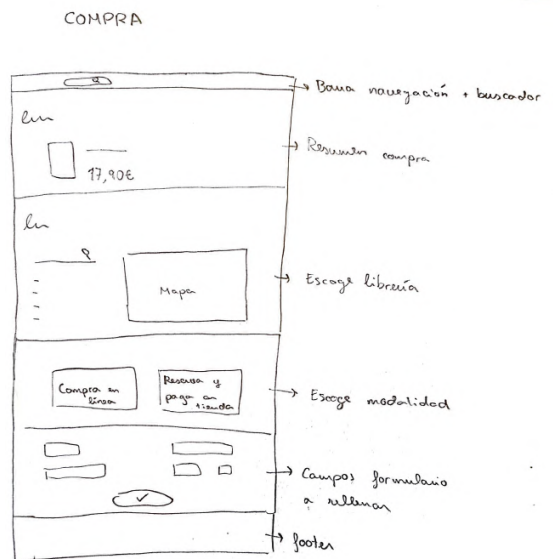 COMPRA
Barra navegación + buscador
Resumen compra
17,90€
Escoge librería
Mapa
Compra en
línea
Reserva y
paga en
tienda
Escoge modalidad
Campos formulario
a rellenar
footer